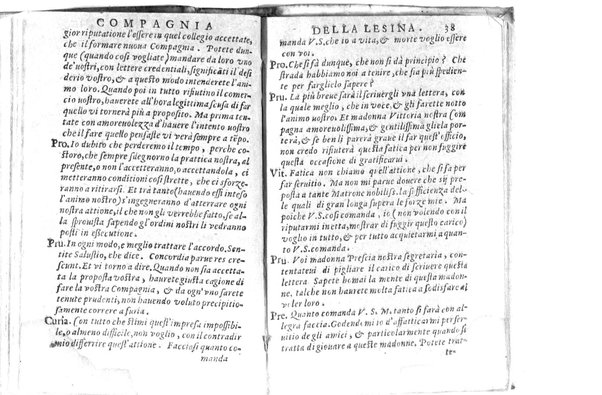 COMPAGNIA
gior riputatione l'essere in quel collegio accettate,
che il formare nuova Compagnia. Potete dun-
que (quando cosi vogliate) mandare da loro uno
de'vostri, con lettere credentiali, significãti il desi
derio vostro, & a questo modo intenderete l'ani-
mo loro. Quando poi in tutto rifiutino il comer-
cio vostro, haverete all'hora legittima scusa di far
quello vi tornerà più a proposito. Ma prima ten-
tate con amorevolezza d'havere l'intento vostro
che il fare quello pensaste vi verà sempre a tẽpo.
Pro. Io dubito che perderemo il tempo, perche co
storo, che sempre sdegnorno la pratica nostra, al
presente, o non l'accetteranno, o accettandola, ci
metteranno conditioni cosi fastidiose, che ci sforze-
ranno a ritirarsi. Et trà tanto (havendo essi inteso
l'animo nostro) s'ingegneranno d'atterrare ogni
nostra attione, il che non gli verrebbe fatto, se al-
la sprovista sapendo gl'ordini nostri li vedranno
posti in essecutione.
Pru. In ogni modo, e meglio trattare l'accordo. Sen-
tite Salustio, che dice. Concordia parve res cre-
scunt. Et vi torno a dire. Quando non sia accetta-
ta la proposta vostra, haurete giusta cagione di
fare la vostra Compagnia, & da ogn'uno sarete
tenute prudenti, non havendo voluto precipitio-
samente correre a furia.
Curia. Con tutto che stimi quest'impresa impossibi-
le, o almeno difficile, non voglio, con il contradir
mio differrire quest'attione. Facciosi quanto co-
manda
DELLA LESINA. 38
manda V.S. che io a vita, & morte voglio essere
con voi.
Pro. Che si fà dunque, che non si dà principio? Che
strada habbiamo noi a tenere, che sia più spedien-
te per farglielo sapere?
Pru. La più breve sarà il scrivergli vna lettera, con
la quale meglio, che in voce, & gli sarete notto
l'animo vostro. Et madonna Vittoria nostra com
pagna amorevolissima, & gentilissima gliela por-
terà, & se ben li parerà grave il far quest'officio,
non credo rifiuterà questa fatica per non fuggire
questa occasione di gratificarvi.
Vit. Fatica non chiamo quell'attione, che si fà per
far servitio. Ma non mi pare dovere che da me si
proposta a tante Matrone nobilis. la sufficienza del-
le quali di gran longa supera le forze mie. Ma
poiche V.S. cosi comanda, io (non volendo con il
riputarmi inetta, mostrar di fuggir questo carico)
voglio in tutto, & per tutto acquietarmi a quan-
to V.S. comanda.
Pru. Voi madonna Prescia nostra segretaria, con-
tentatevi di pigliare il carico di scrivere questa
lettera. Sapete homai la mente di queste madon-
ne. talche non haurete molta fatica a sodisfare al
vi ler loro.
Pre. Quanto comanda V. S. M. tanto si farà con al-
legra faccia. Godendomi io d'affatticarmi per ser-
uitio de gli amici, & particolarmente quando si
tratta di giovare a queste madonne. Potete trat-
te-